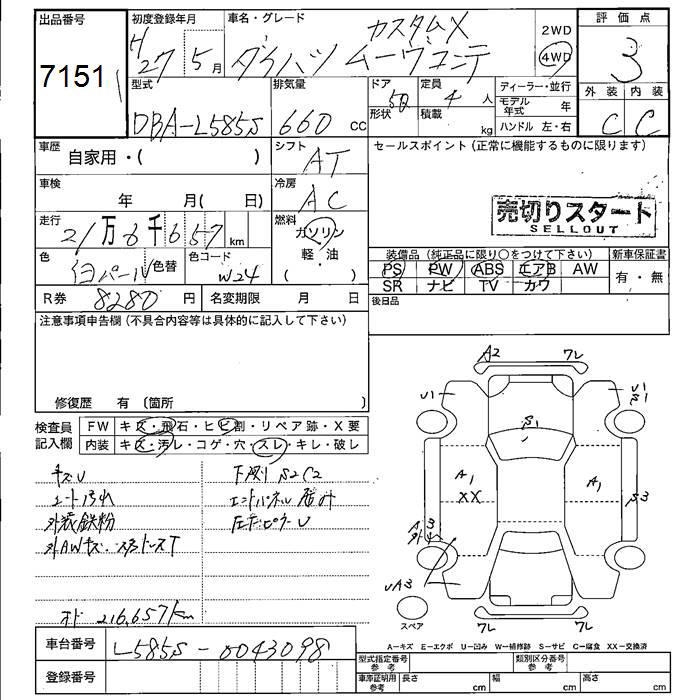 出品番号 初度登録年月 車名・グレード カスタムX 2WD 評価点
7151 H27 5月 ダイハツ ムーヴコンテ 4WD 3
型式 排気量 ドア 定員 ディーラー・並行 外装 内装
DBA-L585S 660 cc 5D 4人 モデル年式 年 C C
形状 積載 kg ハンドル 左・右
車歴 自家用・( ) シフト AT セールスポイント(正常に機能するものに限ります)
車検 年 月( 日) 冷房 AC
売切りスタート
SELLOUT
走行 21万6千657km 燃料 ガソリン
軽・油
色 白パール 色替 色コード W24
装備品(純正品に限り○をつけて下さい) 新車保証書
PS PW ABS エアB AW 有・無
SR ナビ TV カワ
R券 8280円 名変期限 月 日 後日品
注意事項申告欄(不具合内容等は具体的に記入して下さい)
修復歴 有(箇所
検査員 FW キズ・飛石・ヒビ割・リペア跡・X要
記入欄 内装 キズ・汚レ・コゲ・穴・スレ・キレ・破レ
キズU 下廻りS2C2
シート汚れ エンドパネル
外装鉄粉 ピラーU
外AWキズ・スタッドレスT
オド 216,657km
A2 フレ
U1 U1
S1 S1
A1 A1
XX S3
A3
UA3
フレ フレ
スペア
A-キズ E-エクボ U-凹み W-補修跡 S-サビ C-腐食 XX-交換済
車台番号 L585S-0043098
型式指定番号 参考 類別区分番号 参考
登録番号 車庫証明用 参考 長さ cm 幅 cm 高さ cm